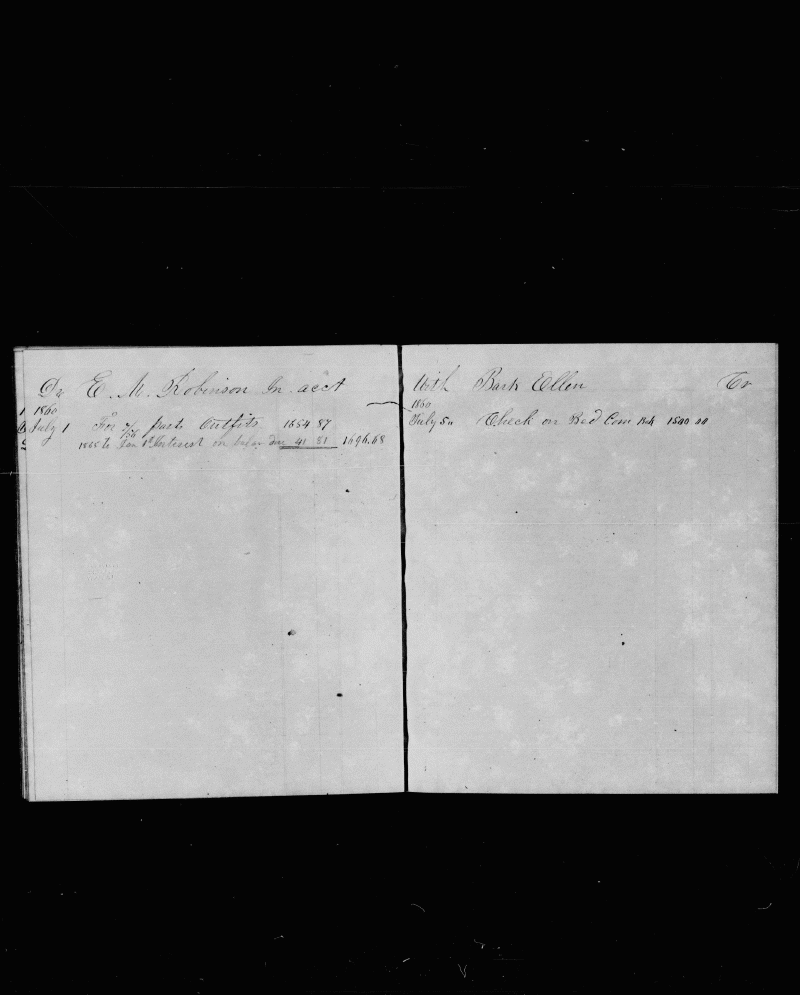 Dr E. M. Robinson In acct
1860
July 1 For parts Outfits 1654 87
to Jan 1st Interest on due 41 81 1696.68
With Bark Ellen Cr
1860
July Check on Bed Com Bnk 1500 00